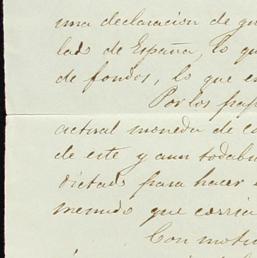 una declaracion de qu
lado de España, lo qu
de fondos, lo que en
Por los pap
actual moneda de co
de este y aun todabi
dictado para hacer
menudo que corria
Con motiv